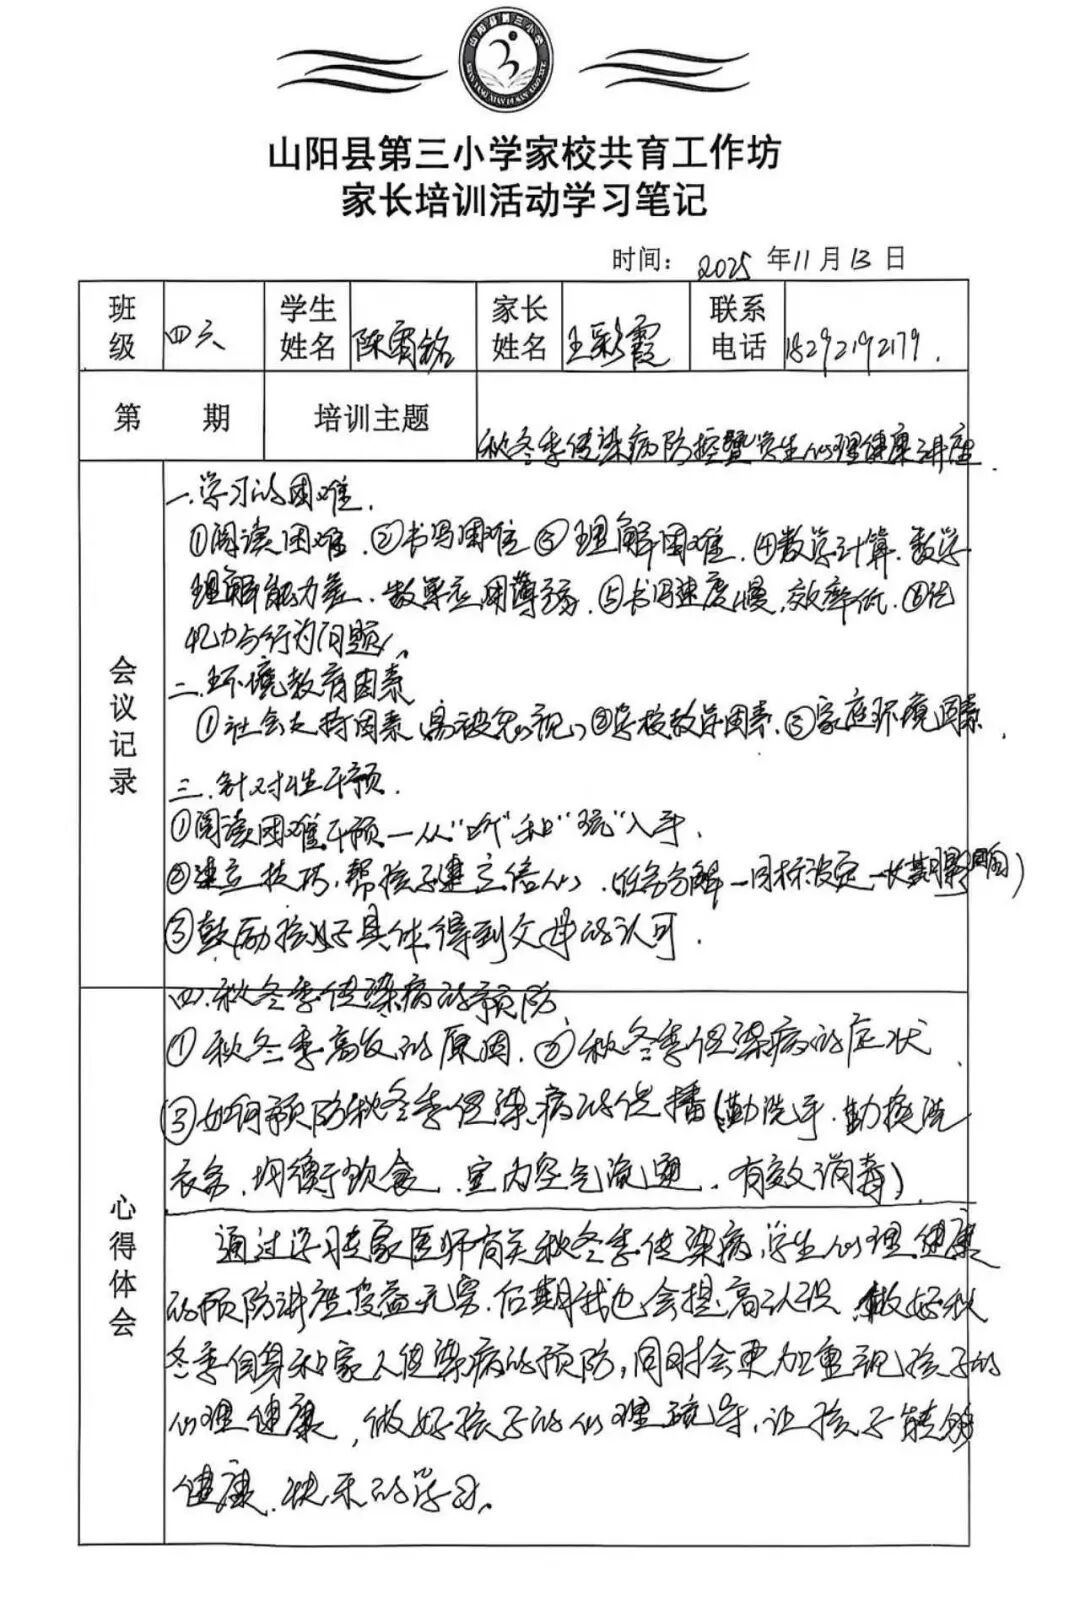 山阳县第三小学
山阳县第三小学家校共育工作坊
家长培训活动学习笔记
时间： 2025 年 11 月 13 日
班级 四六 学生姓名 陈 家长姓名 王彩霞 联系电话 18292192179.
第 期 培训主题 秋冬季传染病防控暨学生心理健康讲座
会议记录
一.学习的困难.
①阅读困难.②书写困难③理解困难.④数学计算.数学
理解能力差.数学应用薄弱.⑤书写速度慢,效率低.⑥记
忆力与行为问题.
二.环境教育因素
①社会支持因素(易被忽视)②学校教学因素.③家庭环境因素.
三.针对性干预.
①阅读困难干预一从“听”和“玩”入手.
②建立技巧,帮孩子建立信心.(任务分解一目标设定一长期影响)
③鼓励孩子具体得到父母的认可.
四.秋冬季传染病的预防
①秋冬季高发的原因.②秋冬季传染病的症状
③如何预防秋冬季传染病的传播(勤洗手.勤换洗
衣服.均衡饮食.室内空气流通.有效消毒)
心得体会
通过学习专家医师有关秋冬季传染病,学生心理健康
的预防讲座受益无穷.后期我也会提高认识.做好秋
冬季自身和家人传染病的预防,同时会更加重视孩子的
心理健康,做好孩子的心理疏导,让孩子能够
健康.快乐的学习.